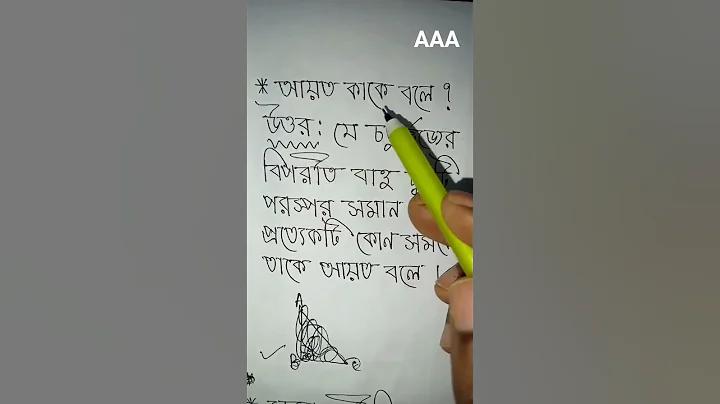 AAA
* আয়ত কাকে বলে ?
উত্তর : যে
বিপরীত বাহু
পরস্পর সমান
প্রত্যেকটি কোন
তাকে আয়ত বলে ।
A
B C
*